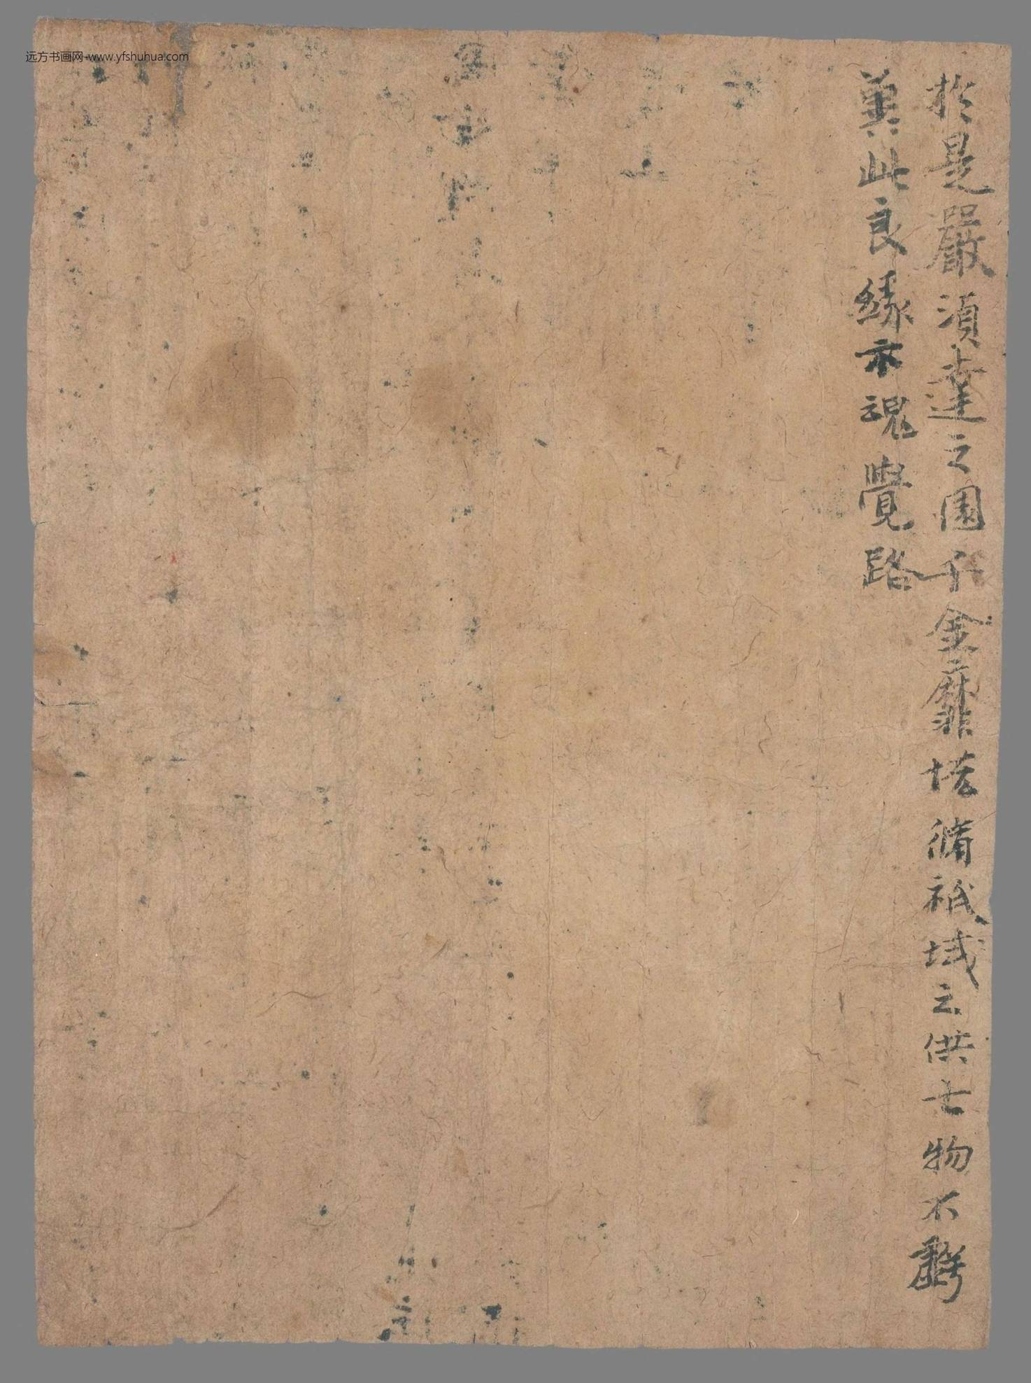 於是嚴須達之園千金靡恡備祇域之供七物不虧
兾此良緣示魂覺路
远方书画网-www.yfshuhua.com